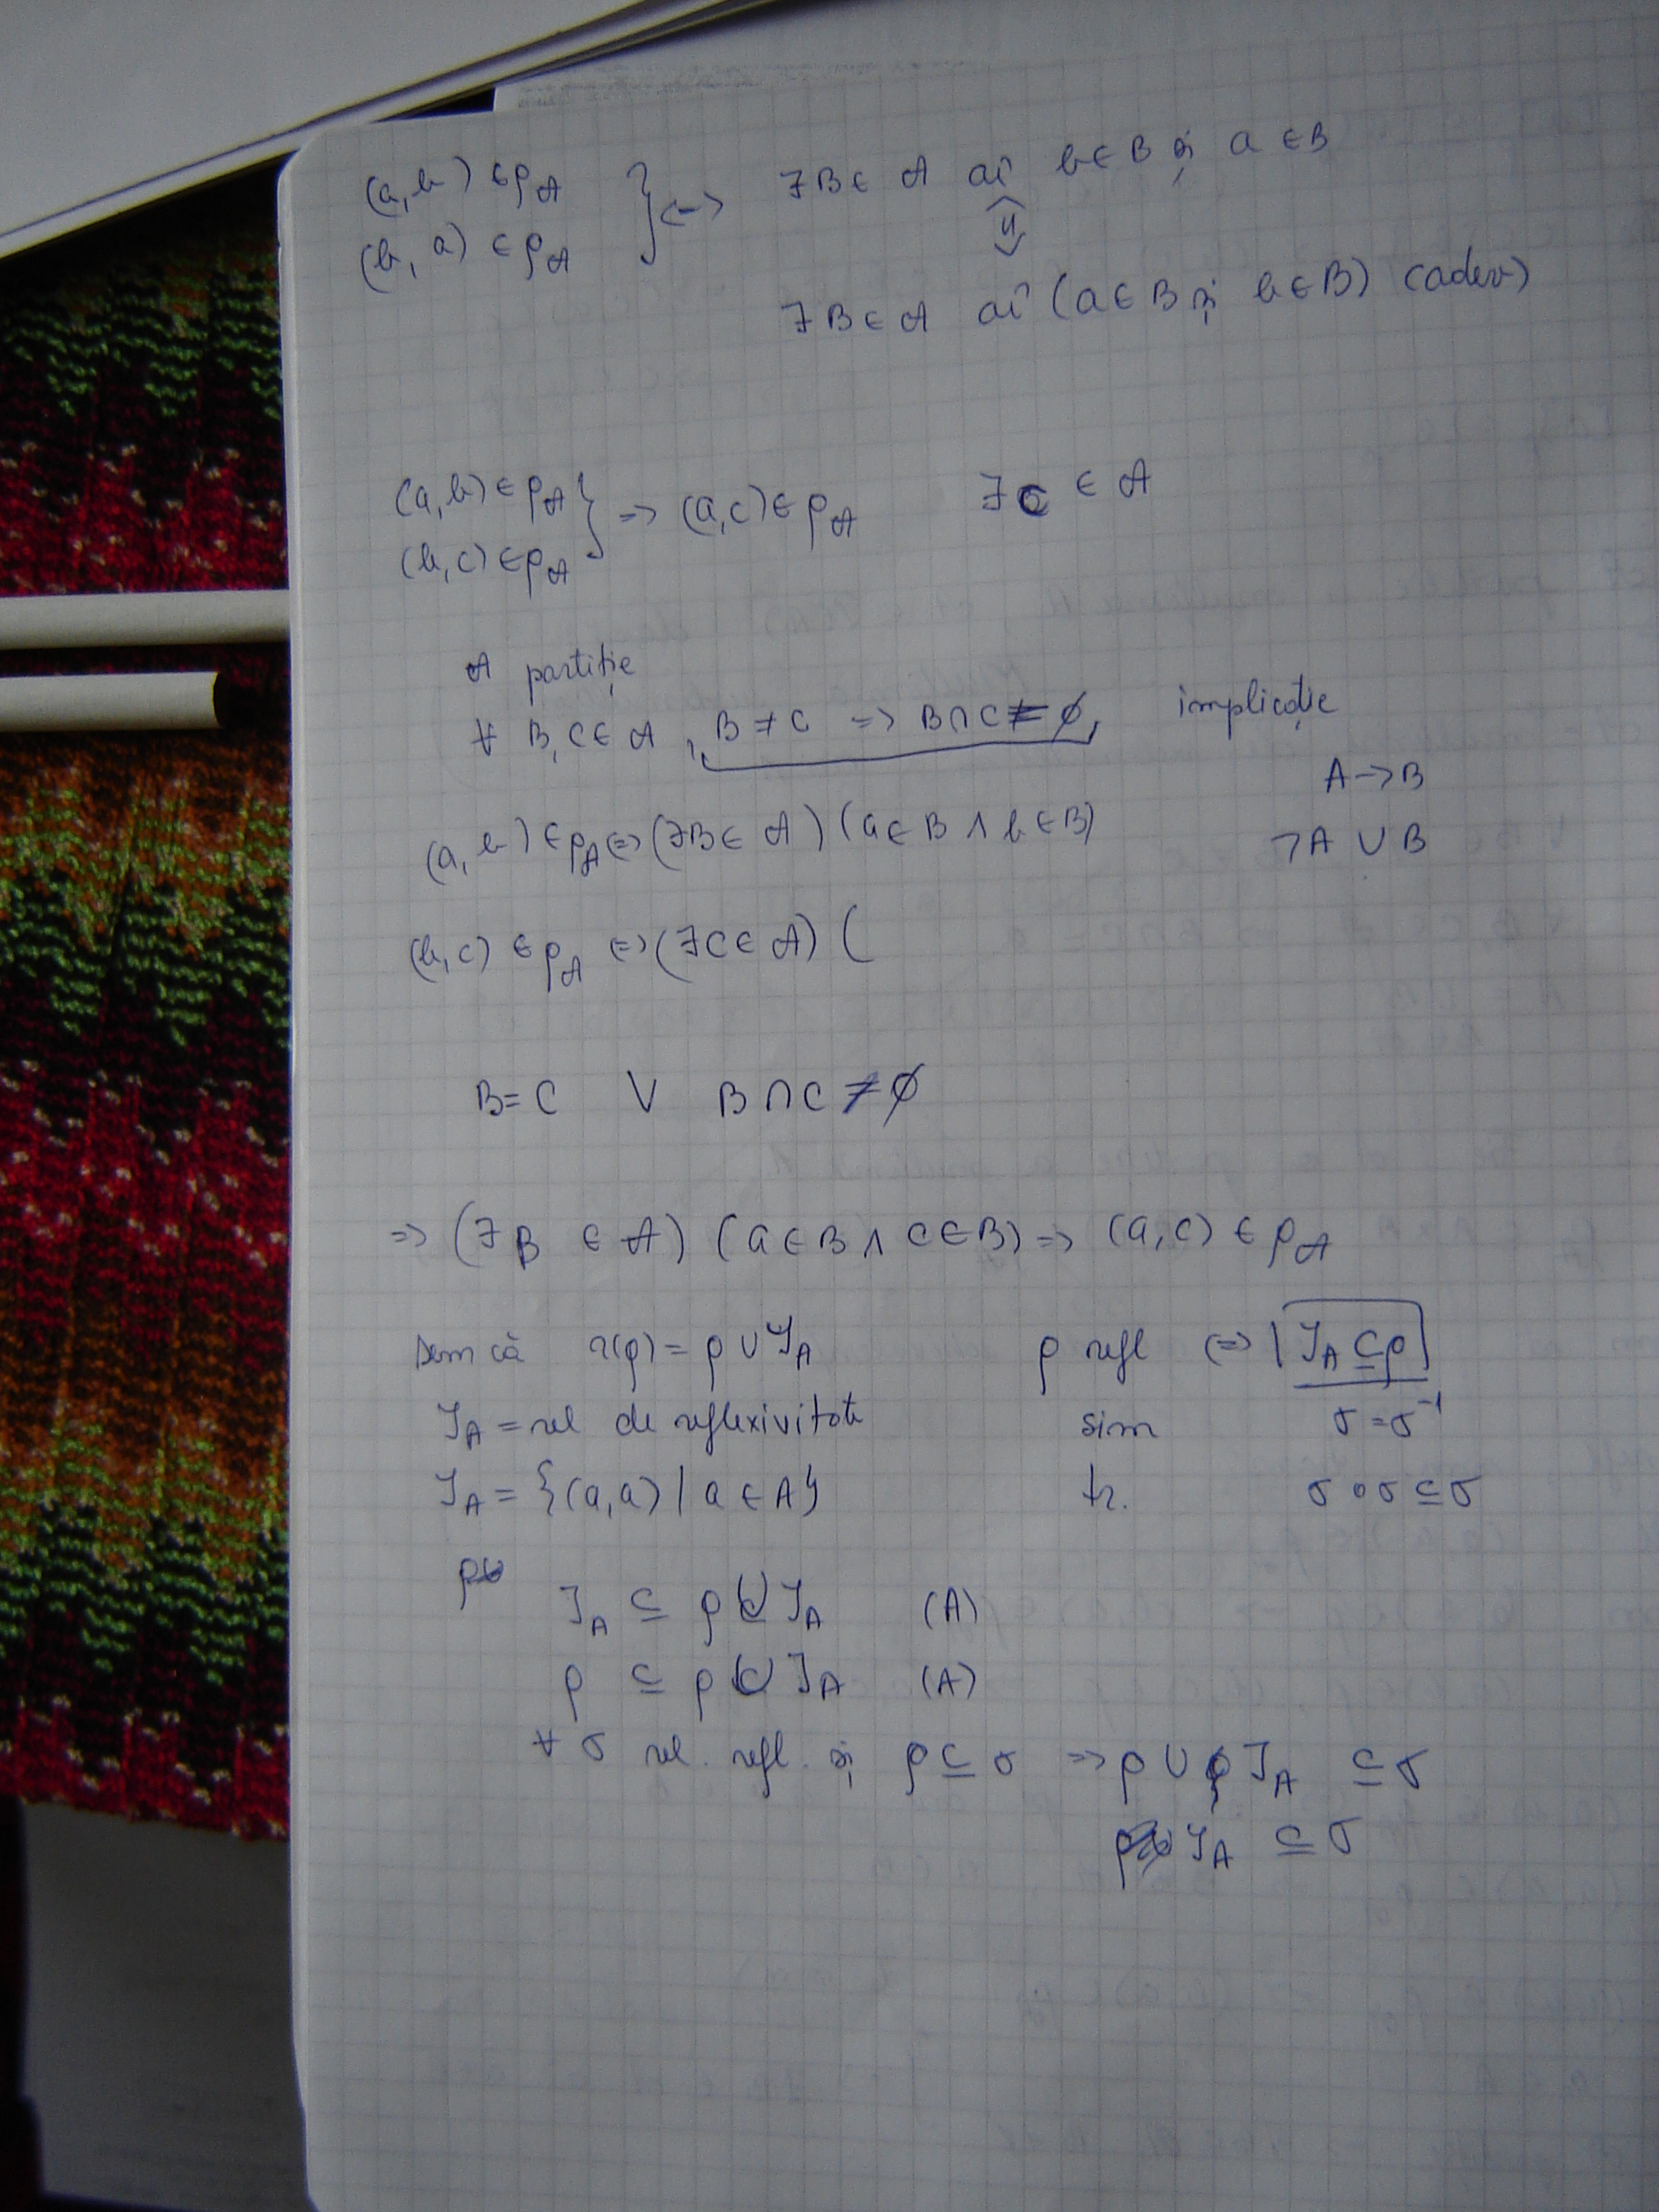 (a,b) ∈ ρ𝒜 } <=> ∃B ∈ 𝒜 aî b∈B și a∈B
(b,a) ∈ ρ𝒜
∃B∈𝒜 aî (a∈B și b∈B) (adev)
(a,b) ∈ ρ𝒜 } => (a,c) ∈ ρ𝒜 ∃C ∈ 𝒜
(b,c) ∈ ρ𝒜
𝒜 partiție
∀ B,C∈𝒜, B≠C => B∩C = ∅, implicație
A->B
(a,b) ∈ ρ𝒜 <=> (∃B∈𝒜) (a∈B ∧ b∈B)
¬A ∪ B
(b,c) ∈ ρ𝒜 <=> (∃C∈𝒜) (
B=C ∨ B∩C ≠ ∅
=> (∃B ∈ 𝒜) (a∈B ∧ c∈B) => (a,c) ∈ ρ𝒜
Dem că r(ρ) = ρ ∪ I_A ρ refl <=> | I_A ⊆ ρ |
I_A = rel de reflexivitate sim σ = σ⁻¹
I_A = {(a,a) | a ∈ A} tr. σ∘σ ⊆ σ
I_A ⊆ ρ ∪ I_A (A)
ρ ⊆ ρ ∪ I_A (A)
∀ σ rel. refl. și ρ ⊆ σ => ρ ∪ I_A ⊆ σ
I_A ⊆ σ